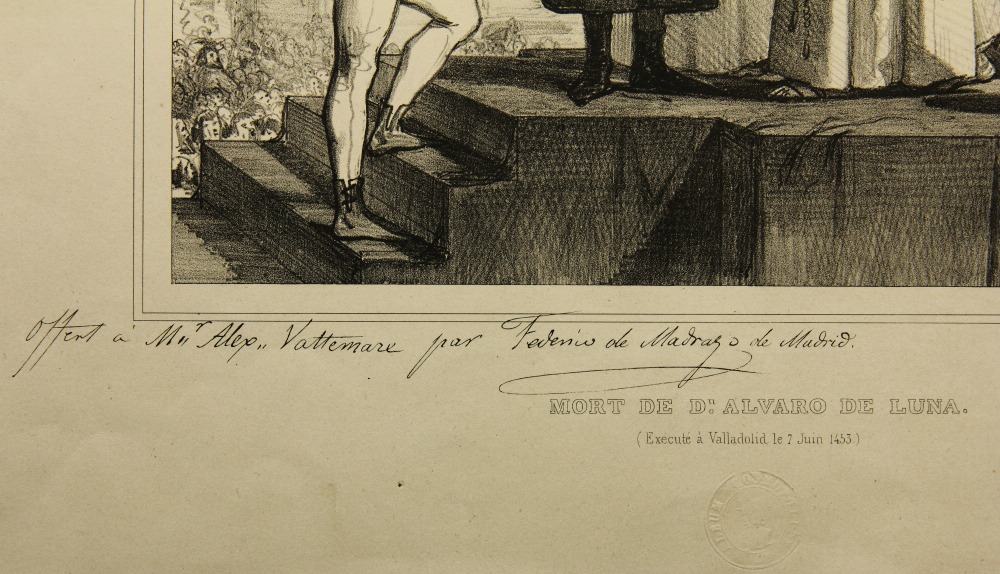 Offert à Mr Alex. Vattemare par Federico de Madrazo de Madrid.
MORT DE Dn. ALVARO DE LUNA.
(Executé à Valladolid, le 7 Juin 1453.)